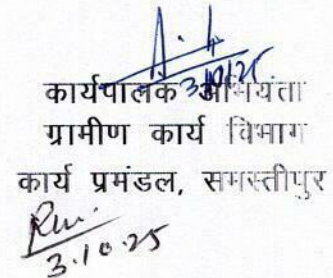 3.10.25
कार्यपालक अभियंता
ग्रामीण कार्य विभाग
कार्य प्रमंडल, समस्तीपुर
3.10.25